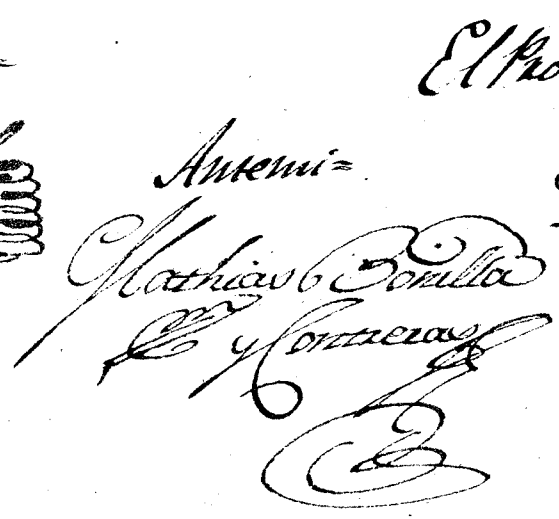 El Pro
Antemi=
Mathias Bonilla
y Contreras